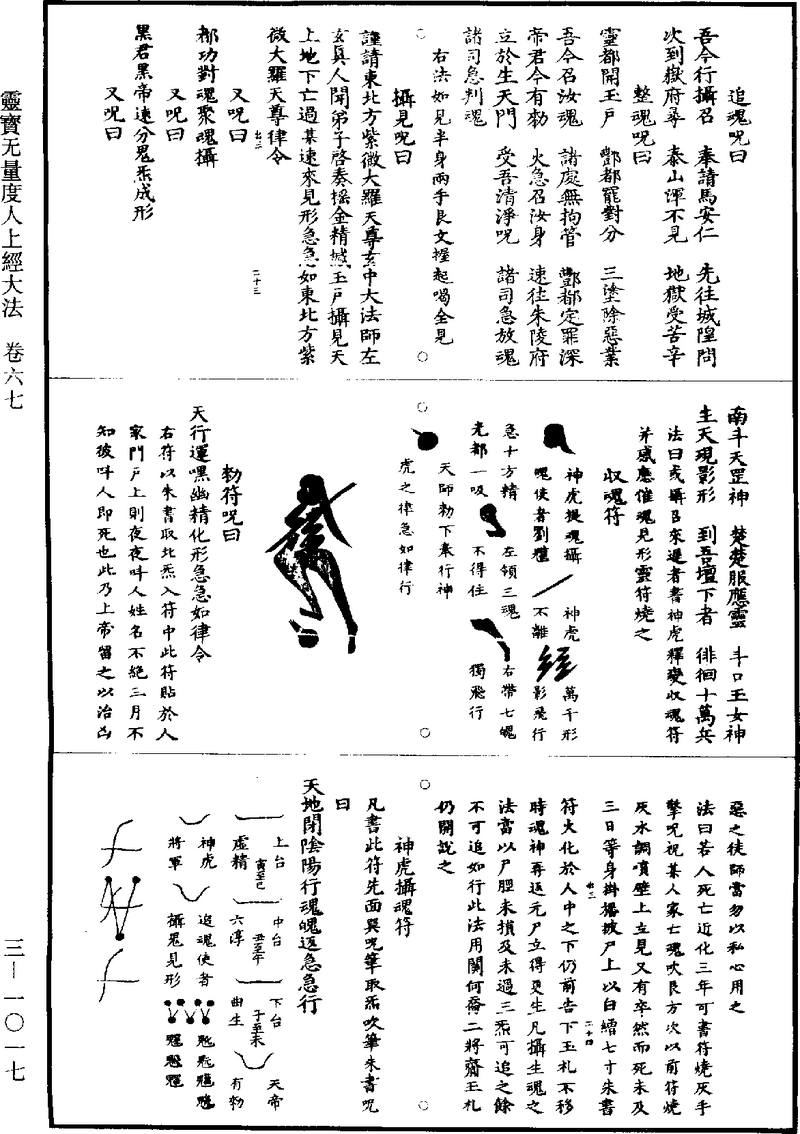 追魂呪曰
吾今行攝召　奉請馬安仁　先往城隍問
次到嶽府尋　泰山渾不見　地獄受苦辛
整魂呪曰
靈都開玉戶　酆都罷對分　三塗除惡業
吾今召汝魂　諸處無拘管　酆都定罪深
帝君今有勑　火急召汝身　速往朱陵府
立於生天門　受吾清淨呪　諸司急放魂
諸司急判魂
右法如見半身兩手艮文握起喝全見
攝見呪曰
謹請東北方紫微大羅天尊玄中大法師左
玄真人聞弟子啓奏搖金精撼玉戶攝見天
上地下亡過某速來見形急急如東北方紫
微大羅天尊律令
又呪曰
都功對魂聚魂攝
又呪曰
黑君黑帝速分鬼炁成形
又呪曰
二十三
南斗天罡神　楚楚服應靈　斗口王女神
生天現影形　到吾壇下者　徘徊十萬兵
法曰或攝召來遲者書神虎釋變収魂符
并感應催魂見形靈符燒之
収魂符
神虎提魂攝　神虎　萬千形
魄使者劉　不離　影飛行
急十方精　左領三魂　右帶七魄
光都一吸　不得住　獨飛行
天師勑下奉行神
虎之律急如律行
勑符呪曰
天行運嘿幽精化形急急如律令
右符以朱書取北炁入符中此符貼於人
家門戶上則夜夜呌人姓名不絕三月不
知彼呌人即死也此乃上帝留之以治凶
惡之徒師當勿以私心用之
法曰若人死亡近化三年可書符燒灰手
擎呪祝某人家亡魂吹艮方次以前符燒
灰水調噴壁上立見又有卒然而死未及
三日等身掛播披尸上以白繒七寸朱書
符火化於人中之下仍前告下玉札不移
時魂神再返元尸立得更生凡攝生魂之
法當以尸脛未損及未過三炁可追之餘
不可追如行此法用關何喬二將齋玉札
仍開説之
二十四
神虎攝魂符
凡書此符先面巽呪筆取炁吹筆朱書呪
曰
天地閉陰陽行魂魄返急急行
上台　中台　下台　天帝
寅至巳　丑至午　子至未
虛精　六淳　曲生　有勑
神虎　追魂使者
將軍　攝鬼見形
靈寶无量度人上經大法　卷六七
三—一〇一七